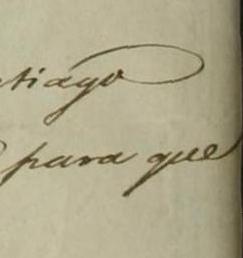 tiago
para que